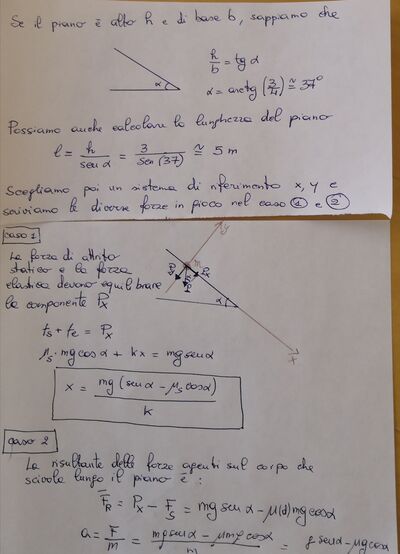 Se il piano è alto h e di base b, sappiamo che
h/b = tg α
α = arctg (3/4) ≅ 37°
α
Possiamo anche calcolare la lunghezza del piano
l = h/sen α = 3/sen(37) ≅ 5 m
Scegliamo poi un sistema di riferimento x, y e
scriviamo le diverse forze in gioco nel caso ① e ②
caso 1
y
La forza di attrito
statico e la forza
elastica devono equilibrare
la componente Px
m
Px
α
x
fs + fe = Px
μs · mg cos α + kx = mg sen α
x = mg (sen α - μs cos α) / k
caso 2
La risultante delle forze agenti sul corpo che
scivola lungo il piano è :
FR = Px - Fs = mg sen α - μ(d) mg cos α
a = F/m = mg sen α - μ mg cos α / m = g sen α - μg cos α